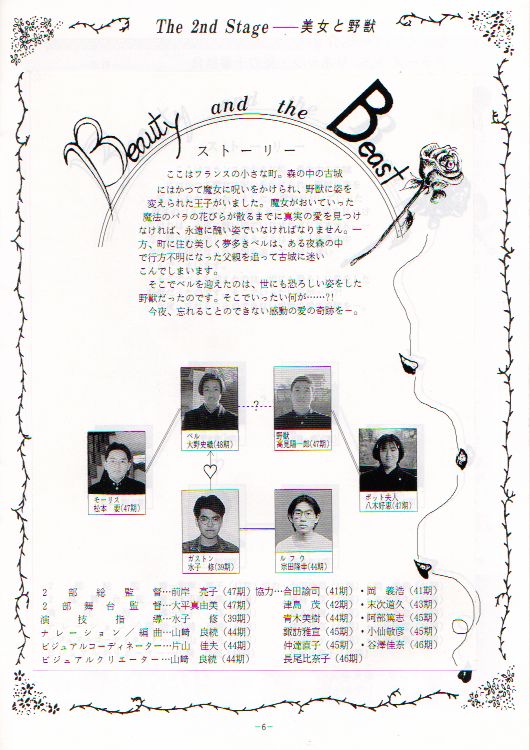 The 2nd Stage――美女と野獣
Beauty and the Beast
ストーリー
ここはフランスの小さな町。森の中の古城
にはかつて魔女に呪いをかけられ、野獣に姿を
変えられた王子がいました。魔女がおいていった
魔法のバラの花びらが散るまでに真実の愛を見つけ
なければ、永遠に醜い姿でいなければなりません。一
方、町に住む美しく夢多きベルは、ある夜森の中
で行方不明になった父親を追って古城に迷い
こんでしまいます。
そこでベルを迎えたのは、世にも恐ろしい姿をした
野獣だったのです。そこでいったい何が……?!
今夜、忘れることのできない感動の愛の奇跡を－。
?
ベル
大野史織(48期)
野獣
高見陽一郎(47期)
モーリス
松本 (47期)
ポット夫人
八木好恵(47期)
ガストン
水子 修(39期)
ルフウ
宗田隆幸(44期)
2部総監督…前岸 亮子(47期)協力…合田諭司(41期)・岡 義浩(41期)
2部舞台監督…大平真由美(47期) 津島 茂(42期)・末次道久(43期)
演技指導…水子 修(39期) 青木美樹(44期)・阿部篤志(45期)
ナレーション／編曲…山崎 良続(44期) 諏訪雅宣(45期)・小仙敏彦(45期)
ビジュアルコーディネーター…片山 佳夫(44期) 仲達直子(45期)・谷澤佳奈(46期)
ビジュアルクリエーター…山崎 良続(44期) 長尾比奈子(46期)
－6－